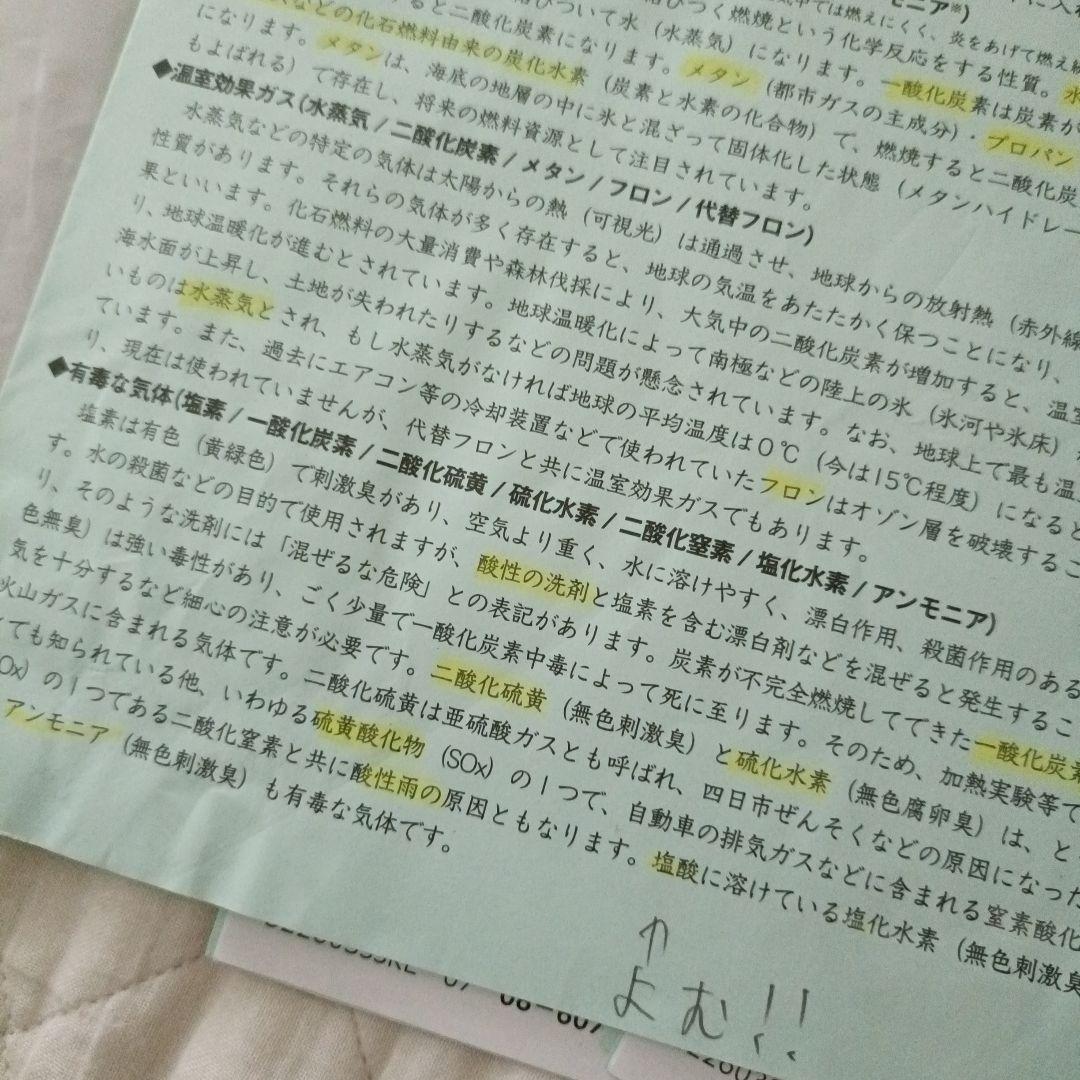 モニア※)
気中では燃えにくく、炎をあげて燃え続
結びつく燃焼という化学反応をする性質。水
結びついて水（水蒸気）になります。一酸化炭素は炭素が
すると二酸化炭素になります。メタン（都市ガスの主成分）・プロパン
などの化石燃料由来の炭化水素（炭素と水素の化合物）で、燃焼すると二酸化炭
になります。メタンは、海底の地層の中に氷と混ざって固体化した状態（メタンハイドレー
もよばれる）で存在し、将来の燃料資源として注目されています。
◆温室効果ガス(水蒸気 / 二酸化炭素 / メタン / フロン / 代替フロン)
水蒸気などの特定の気体は太陽からの熱（可視光）は通過させ、地球からの放射熱（赤外線
性質があります。それらの気体が多く存在すると、地球の気温をあたたかく保つことになり、
果といいます。化石燃料の大量消費や森林伐採により、大気中の二酸化炭素が増加すると、温室
り、地球温暖化が進むとされています。地球温暖化によって南極などの陸上の氷（氷河や氷床）
海水面が上昇し、土地が失われたりするなどの問題が懸念されています。なお、地球上で最も温
いものは水蒸気とされ、もし水蒸気がなければ地球の平均温度は０℃（今は15℃程度）になると
ています。また、過去にエアコン等の冷却装置などで使われていたフロンはオゾン層を破壊するこ
り、現在は使われていませんが、代替フロンと共に温室効果ガスでもあります。
◆有毒な気体(塩素 / 一酸化炭素 / 二酸化硫黄 / 硫化水素 / 二酸化窒素 / 塩化水素 / アンモニア)
塩素は有色（黄緑色）で刺激臭があり、空気より重く、水に溶けやすく、漂白作用、殺菌作用のある
す。水の殺菌などの目的で使用されますが、酸性の洗剤と塩素を含む漂白剤などを混ぜると発生するこ
り、そのような洗剤には「混ぜるな危険」との表記があります。炭素が不完全燃焼してできた一酸化炭素
色無臭）は強い毒性があり、ごく少量で一酸化炭素中毒によって死に至ります。そのため、加熱実験等で
気を十分するなど細心の注意が必要です。二酸化硫黄（無色刺激臭）と硫化水素（無色腐卵臭）は、と
火山ガスに含まれる気体です。二酸化硫黄は亜硫酸ガスとも呼ばれ、四日市ぜんそくなどの原因になった
ても知られている他、いわゆる硫黄酸化物（SOx）の１つで、自動車の排気ガスなどに含まれる窒素酸化
Ox）の１つである二酸化窒素と共に酸性雨の原因ともなります。塩酸に溶けている塩化水素（無色刺激臭
アンモニア（無色刺激臭）も有毒な気体です。
↑
よむ!!